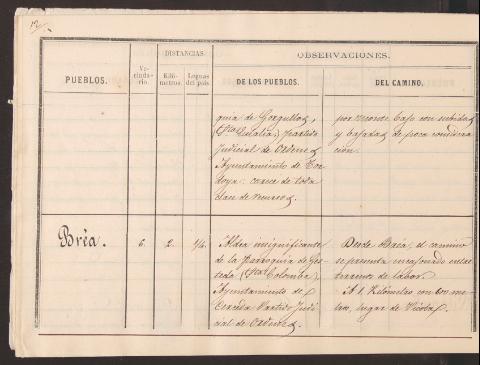 12.
DISTANCIAS.
OBSERVACIONES.
PUEBLOS.
Ve-
cinda-
rio.
Kiló-
metros.
Leguas
del país
DE LOS PUEBLOS.
DEL CAMINO.
quia de Gorgullos,
(Sta Eulalia,) partido
Judicial de Ordenes
Ayuntamiento de Tor-
doya: carece de toda
clase de recursos.
por monte bajo con subidas
y bajadas de poca considera
cion.
Brêa.
6.
2.
1/4.
Aldea insignificante
de la Parroquia de Ges-
teda (Sta Colomba),
Ayuntamiento de
Cerceda Partido Judi-
cial de Ordenes.
Desde Brêa, el camino
se presenta encajonado entre
terrenos de labor.
A 1. Kilómetro con 600 me-
tros, lugar de